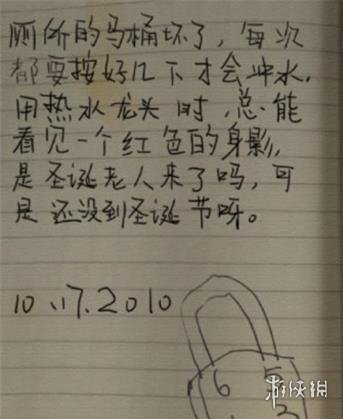 厕所的马桶坏了，每次
都要按好几下才会冲水，
用热水龙头时，总能
看见一个红色的身影，
是圣诞老人来了吗，可
是还没到圣诞节呀。
10.17.2010
6 5
游侠网